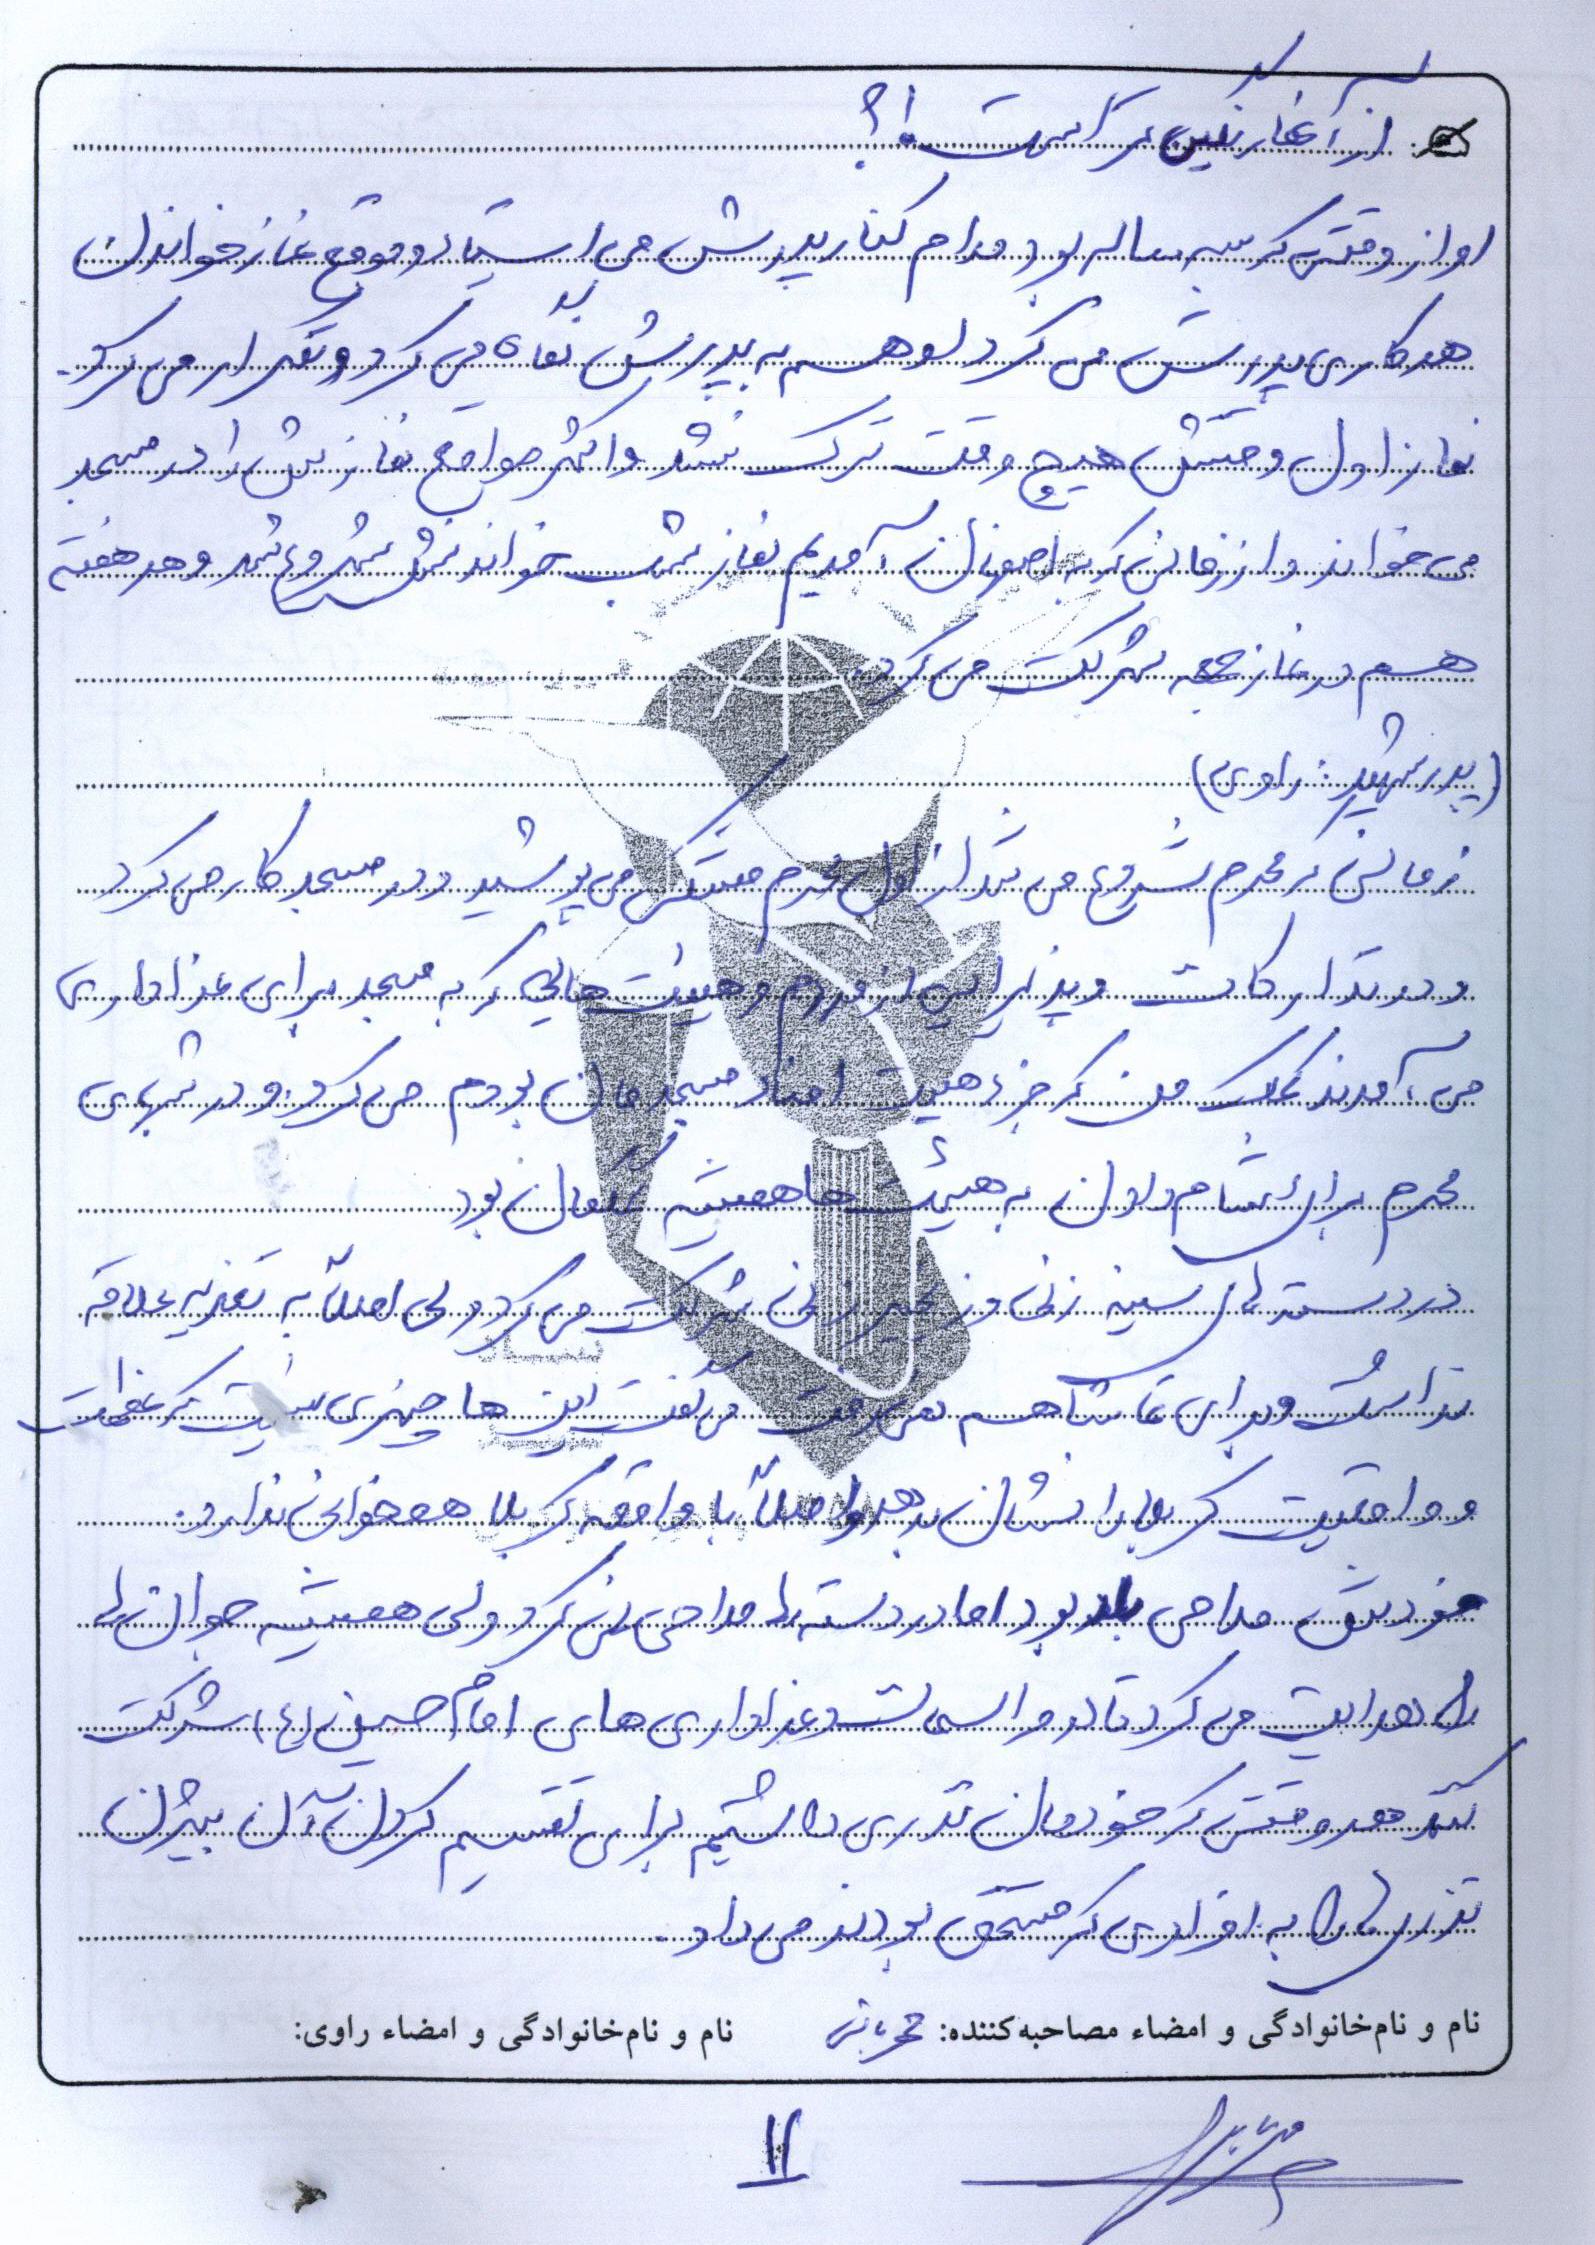 از آغاز تکلیف
او از وقتی که سه ساله بود مدام کنار پدرش می ایستاد و موقع نماز خواندن
هر کاری پدرش می کرد او هم به پدرش نگاه می کرد و تکرار می کرد.
نماز اول وقتش هیچ وقت ترک نشد و اکثر مواقع نمازش را در مسجد
می خواند و از زمانی که به اصفهان آمدیم نماز شب خواندنش شروع شد و هر هفته
هم در نماز جمعه شرکت می کرد.
(پدر شهید: راوی)
زمانی که محرم شروع می شد از اول محرم مشکی می پوشید و در مسجد کار می کرد
و در تدارکات و پذیرایی از مردم و هیئت هایی که به مسجد برای عزاداری
می آمدند کمک من که جزء هیئت امناء مسجدمان بودم می کرد. و در شبهای
محرم برای شام دادن به هیئت ها همیشه بود
در دسته های سینه زنی و زنجیر زنی شرکت می کرد ولی اصلاً به تعزیه علاقه
نداشت و برای تماشا هم نمی رفت می گفت این ها چیزی نیست که عظمت
و واقعیت کربلا را نشان بدهد و اصلاً با واقعه کربلا همخوانی ندارد.
خودش مداحی بلد بود اما در دسته ها مداحی نمی کرد ولی همیشه جوان ها
را هدایت می کرد تا در مراسمات و عزاداری های امام حسین (ع) شرکت
کنند هر وقتی که خودمان نذری داشتیم برای تقسیم کردن آن بیشتر
نذری ها را به افرادی که مستحق بودند می داد.
نام و نام‌خانوادگی و امضاء مصاحبه‌کننده: نام و نام‌خانوادگی و امضاء راوی:
۱۲